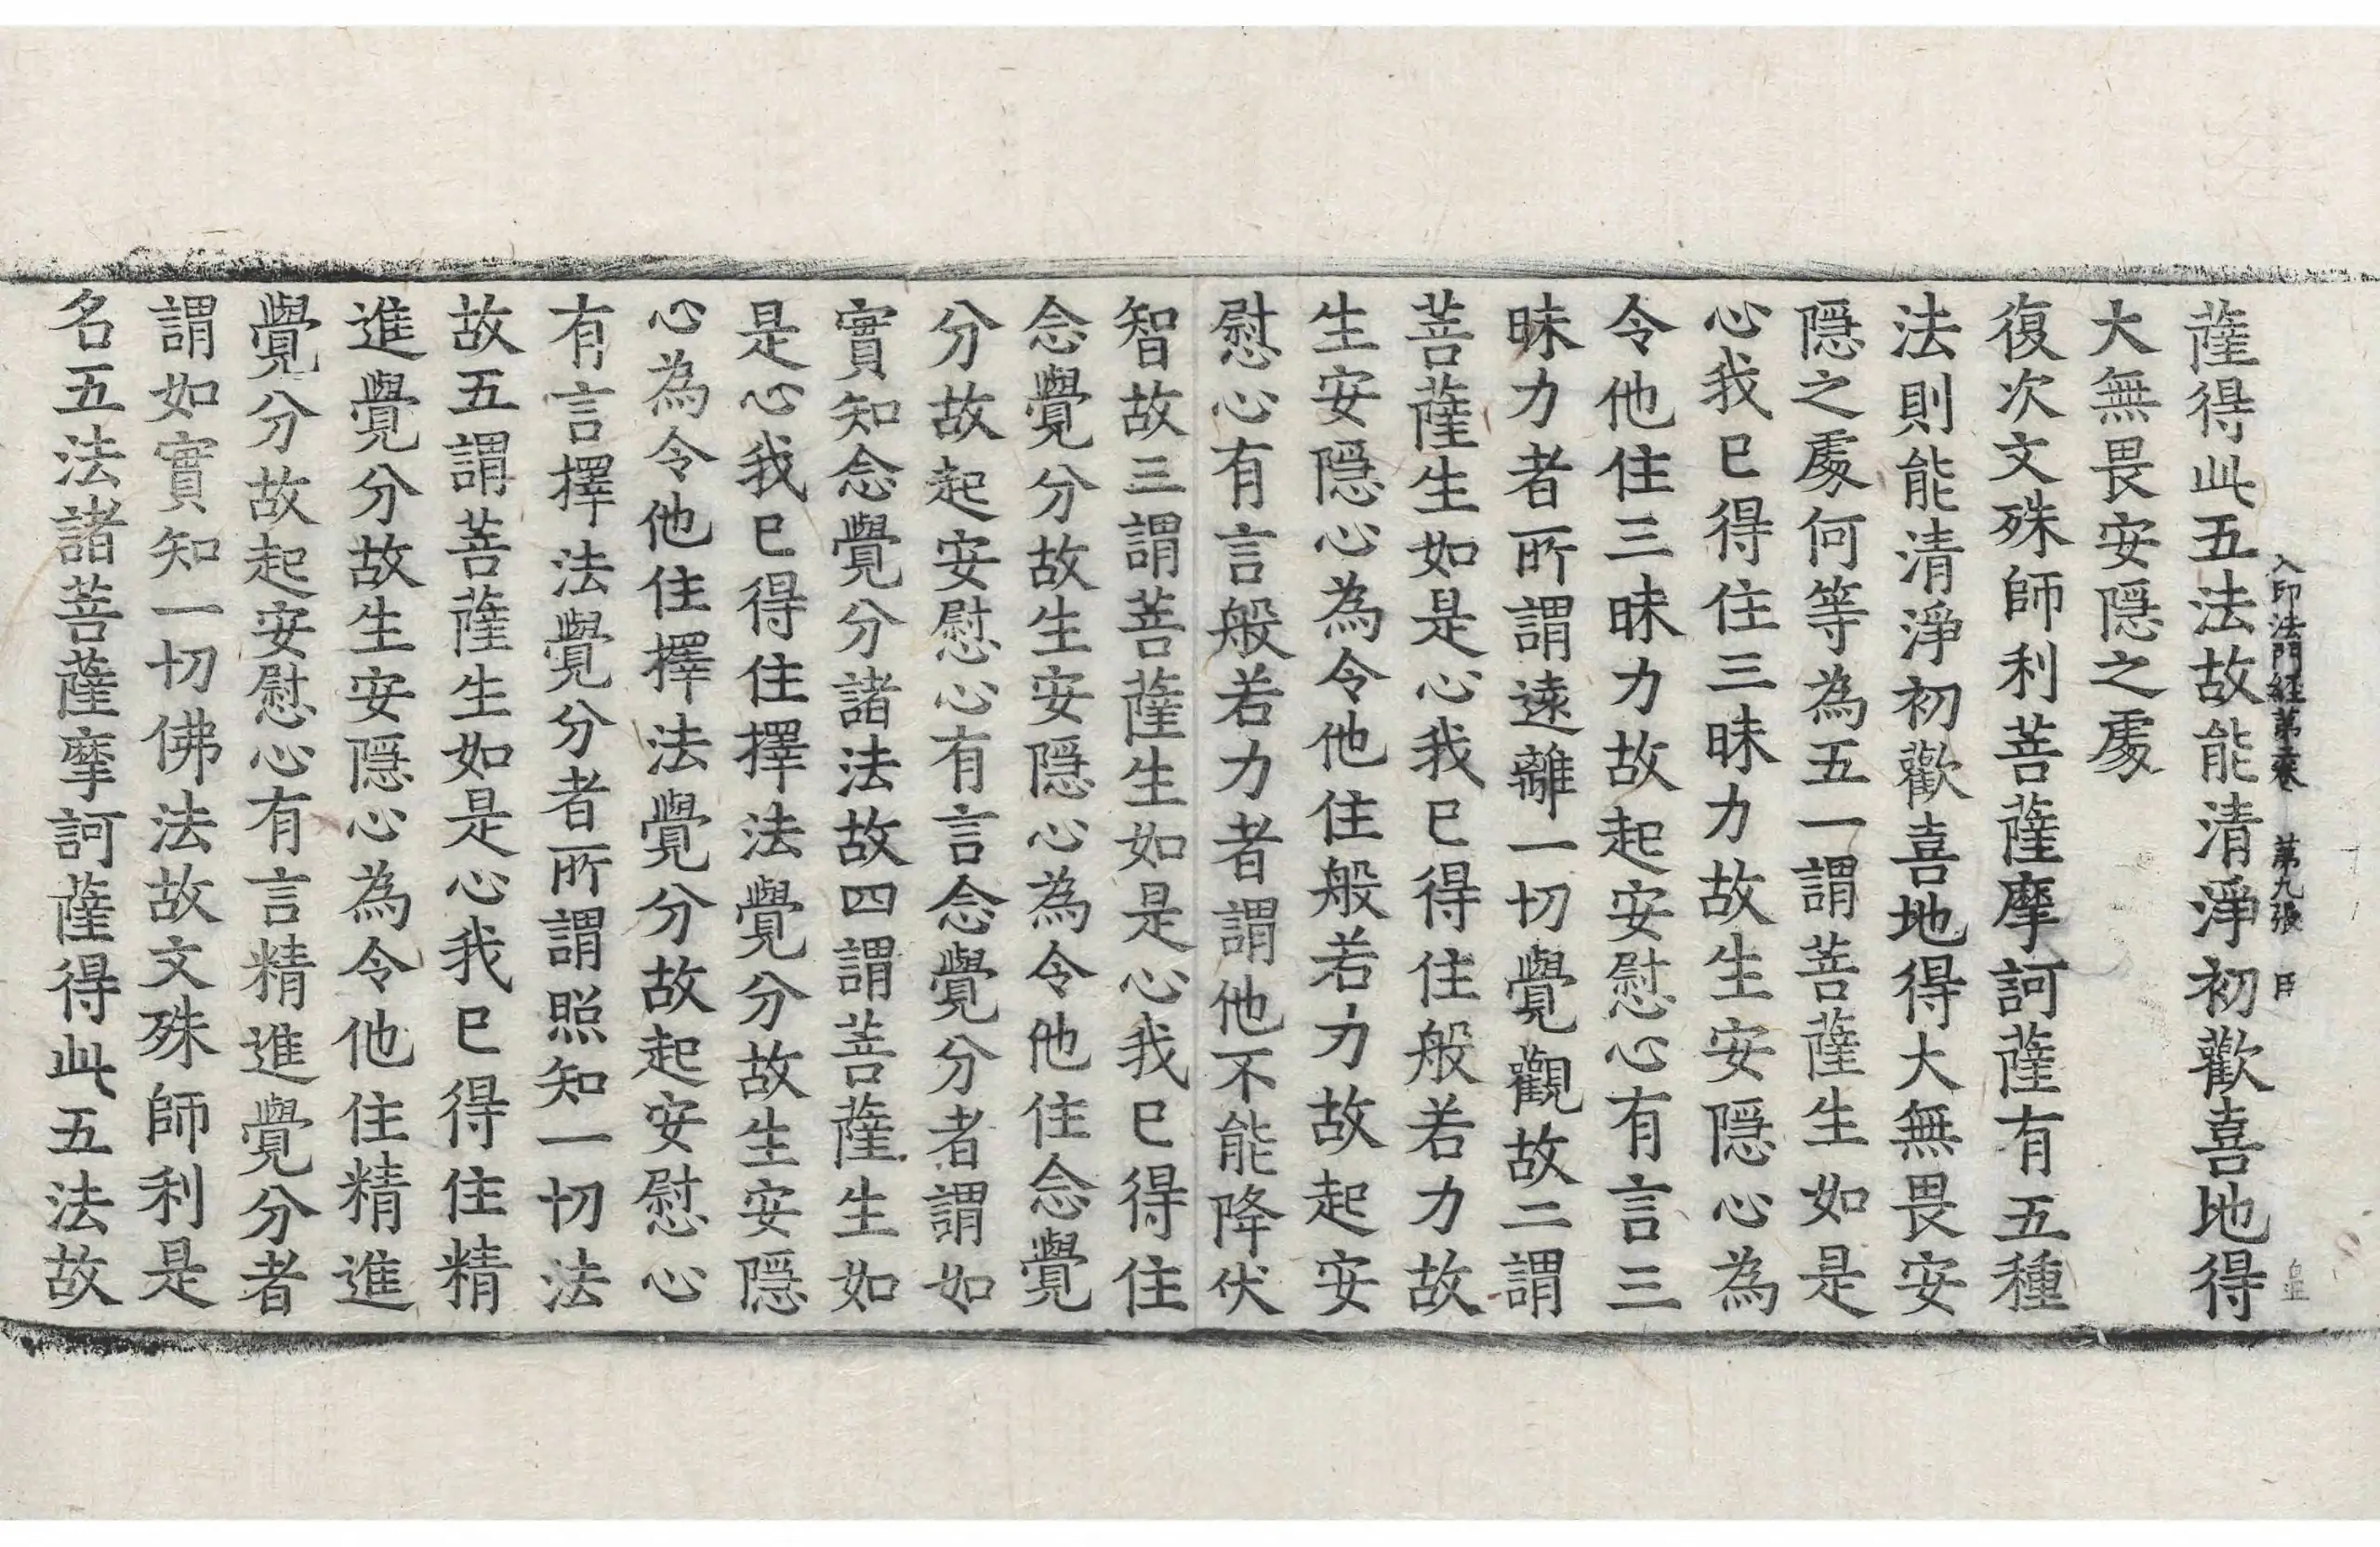 入印法門經第五卷 第九張 臣
薩得此五法故能清淨初歡喜地得
大無畏安隱之處
復次文殊師利菩薩摩訶薩有五種
法則能清淨初歡喜地得大無畏安
隱之處何等為五一謂菩薩生如是
心我已得住三昧力故生安隱心為
令他住三昧力故起安慰心有言三
昧力者所謂遠離一切覺觀故二謂
菩薩生如是心我已得住般若力故
生安隱心為令他住般若力故起安
慰心有言般若力者謂他不能降伏
智故三謂菩薩生如是心我已得住
念覺分故生安隱心為令他住念覺
分故起安慰心有言念覺分者謂如
實知念覺分諸法故四謂菩薩生如
是心我已得住擇法覺分故生安隱
心為令他住擇法覺分故起安慰心
有言擇法覺分者所謂照知一切法
故五謂菩薩生如是心我已得住精
進覺分故生安隱心為令他住精進
覺分故起安慰心有言精進覺分者
謂如實知一切佛法故文殊師利是
名五法諸菩薩摩訶薩得此五法故